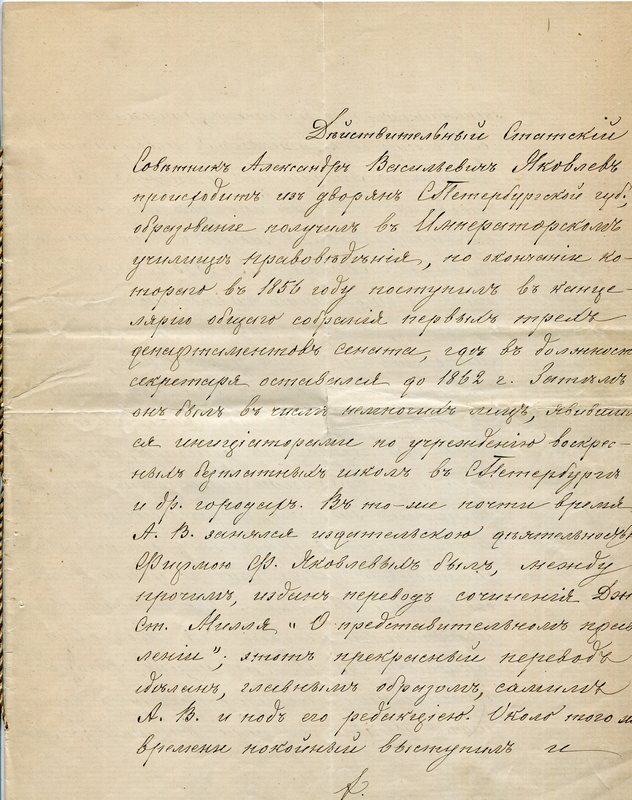 Дѣйствительный Статскій
Совѣтникъ Александръ Васильевичъ Яковлевъ
происходитъ изъ дворянъ С.Петербургской губ.,
образованіе получилъ въ Императорскомъ
училищѣ правовѣдѣнія, по окончаніи ко-
тораго въ 1856 году поступилъ въ канце-
лярію общаго собранія первыхъ трехъ
департаментовъ сената, гдѣ въ должност
секретаря оставался до 1862 г. Затѣмъ
онъ былъ въ числѣ немногихъ лицъ, явивши
ся иниціаторами по учрежденію воскрес-
ныхъ безплатныхъ школъ въ С.Петербургѣ
и др. городахъ. Въ то-же почти время
А. В. занялся издательскою дѣятельность
Фирмою Ф. Яковлевымъ былъ, между
прочимъ, изданъ переводъ сочиненія Дж
Ст. Милля „О представительномъ прав
леніи"; этотъ прекрасный переводъ
сдѣланъ, главнымъ образомъ, самимъ
А. В. и подъ его редакціею. Около того
времени покойный выступилъ и